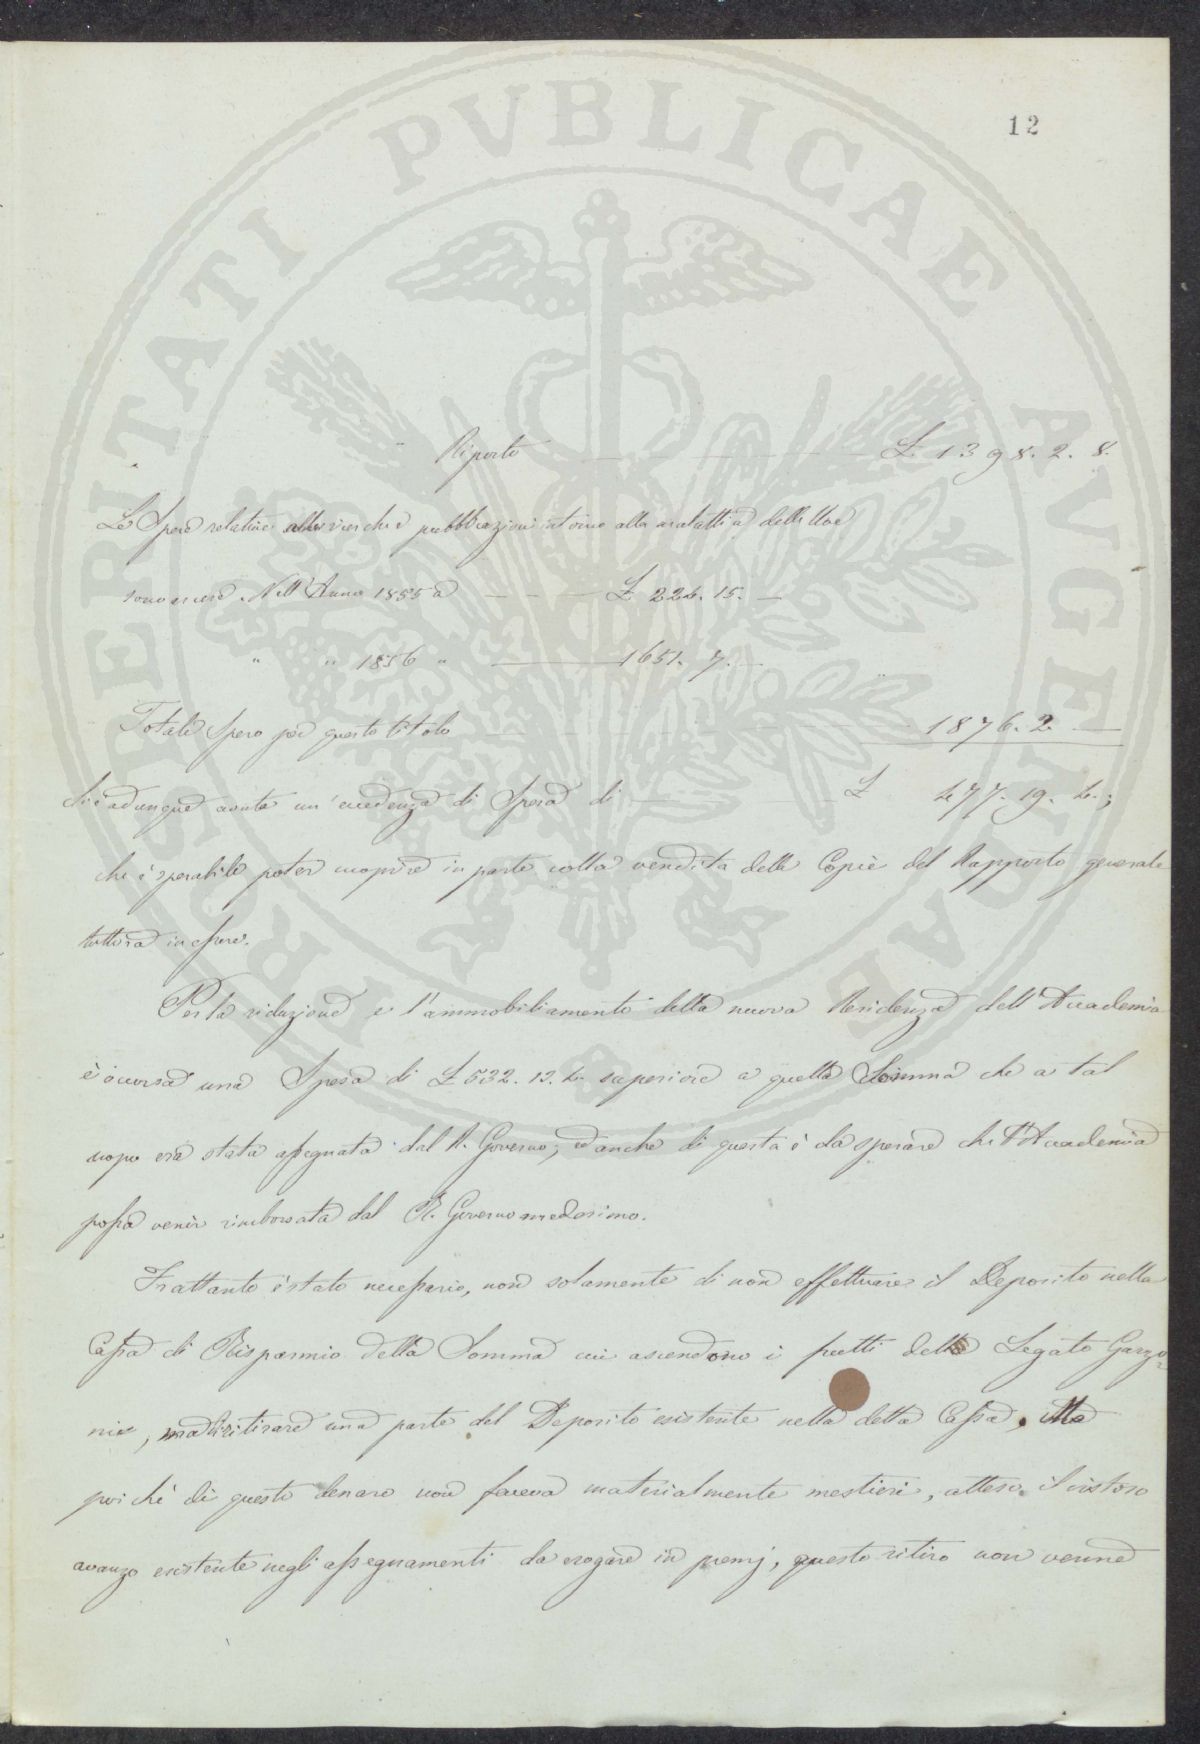 12
PROSPERITATI PVBLICAE AVGENDAE
" Riporto £ 1398. 2. 8.
Le Spese relative alle ricerche e pubblicazioni intorno alla malattia delle Uve
sono ascese Nell'Anno 1855 a £ 224. 15. —
" " 1856 " 1651. 7. —
Totale Spese per questo titolo 1876. 2. —
Si è adunque avuta un'eccedenza di Spesa di £ 477. 19. 4.;
che è sperabile poter cuoprire in parte colla vendita delle Copie del Rapporto generale
tuttora in essere.
Per la riduzione e l'ammobiliamento della nuova Residenza dell'Accademia
è occorsa una Spesa di £ 532. 13. 4. superiore a quella Somma che a tal
uopo era stata assegnata dal R. Governo; ed anche di questa è da sperare che l'Accademia
possa venir rimborsata dal R. Governo medesimo.
Frattanto è stato necessario, non solamente di non effettuare il Deposito nella
Cassa di Risparmio della Somma cui ascendono i frutti del Legato Garzo=
ni, ma di ritirare una parte del Deposito esistente nella detta Cassa. Ma
poichè di questo denaro non faceva materialmente mestieri, atteso il vistoso
avanzo esistente negli assegnamenti da erogare in premj, questo ritiro non venne